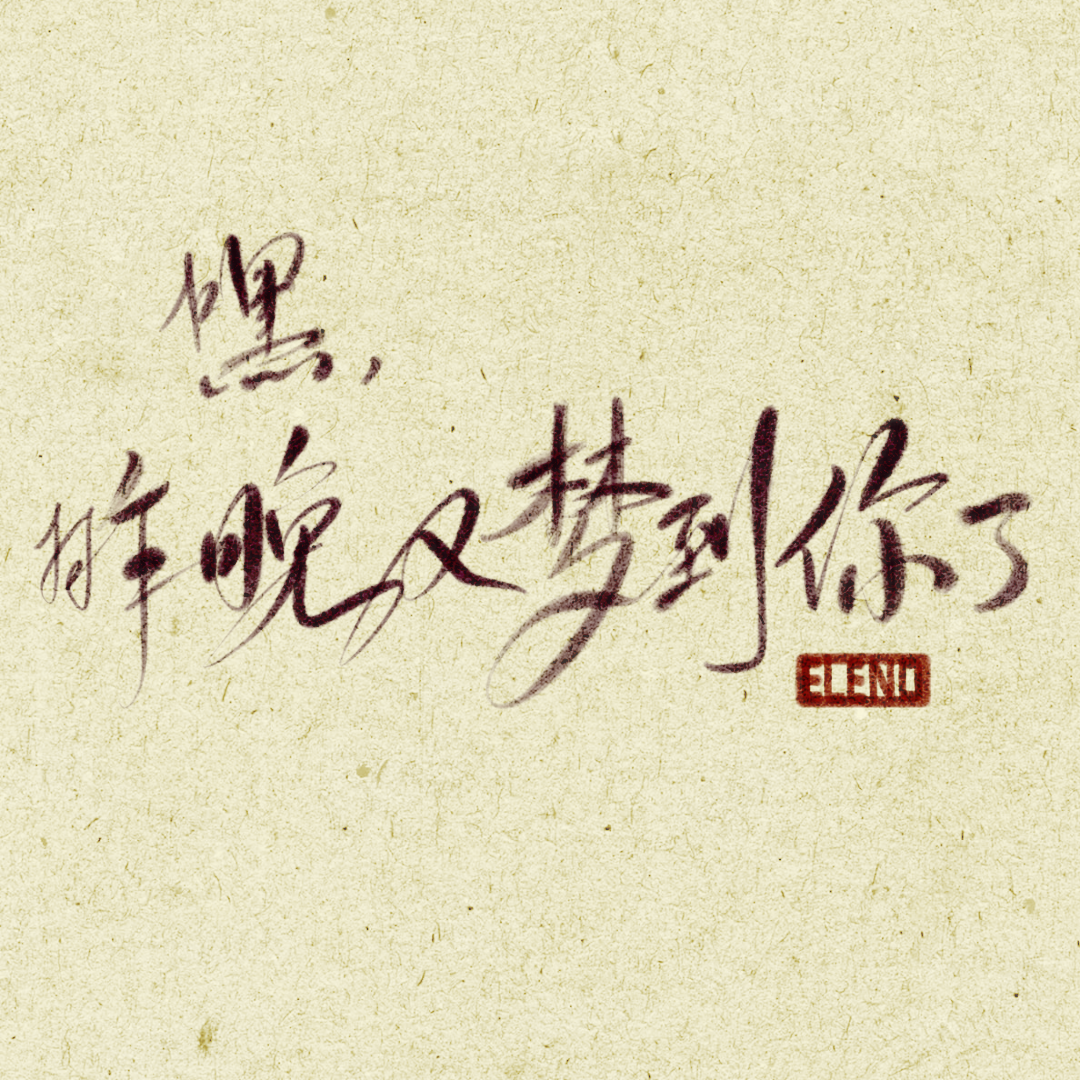 嘿，
昨晚又梦到你了
ELENO